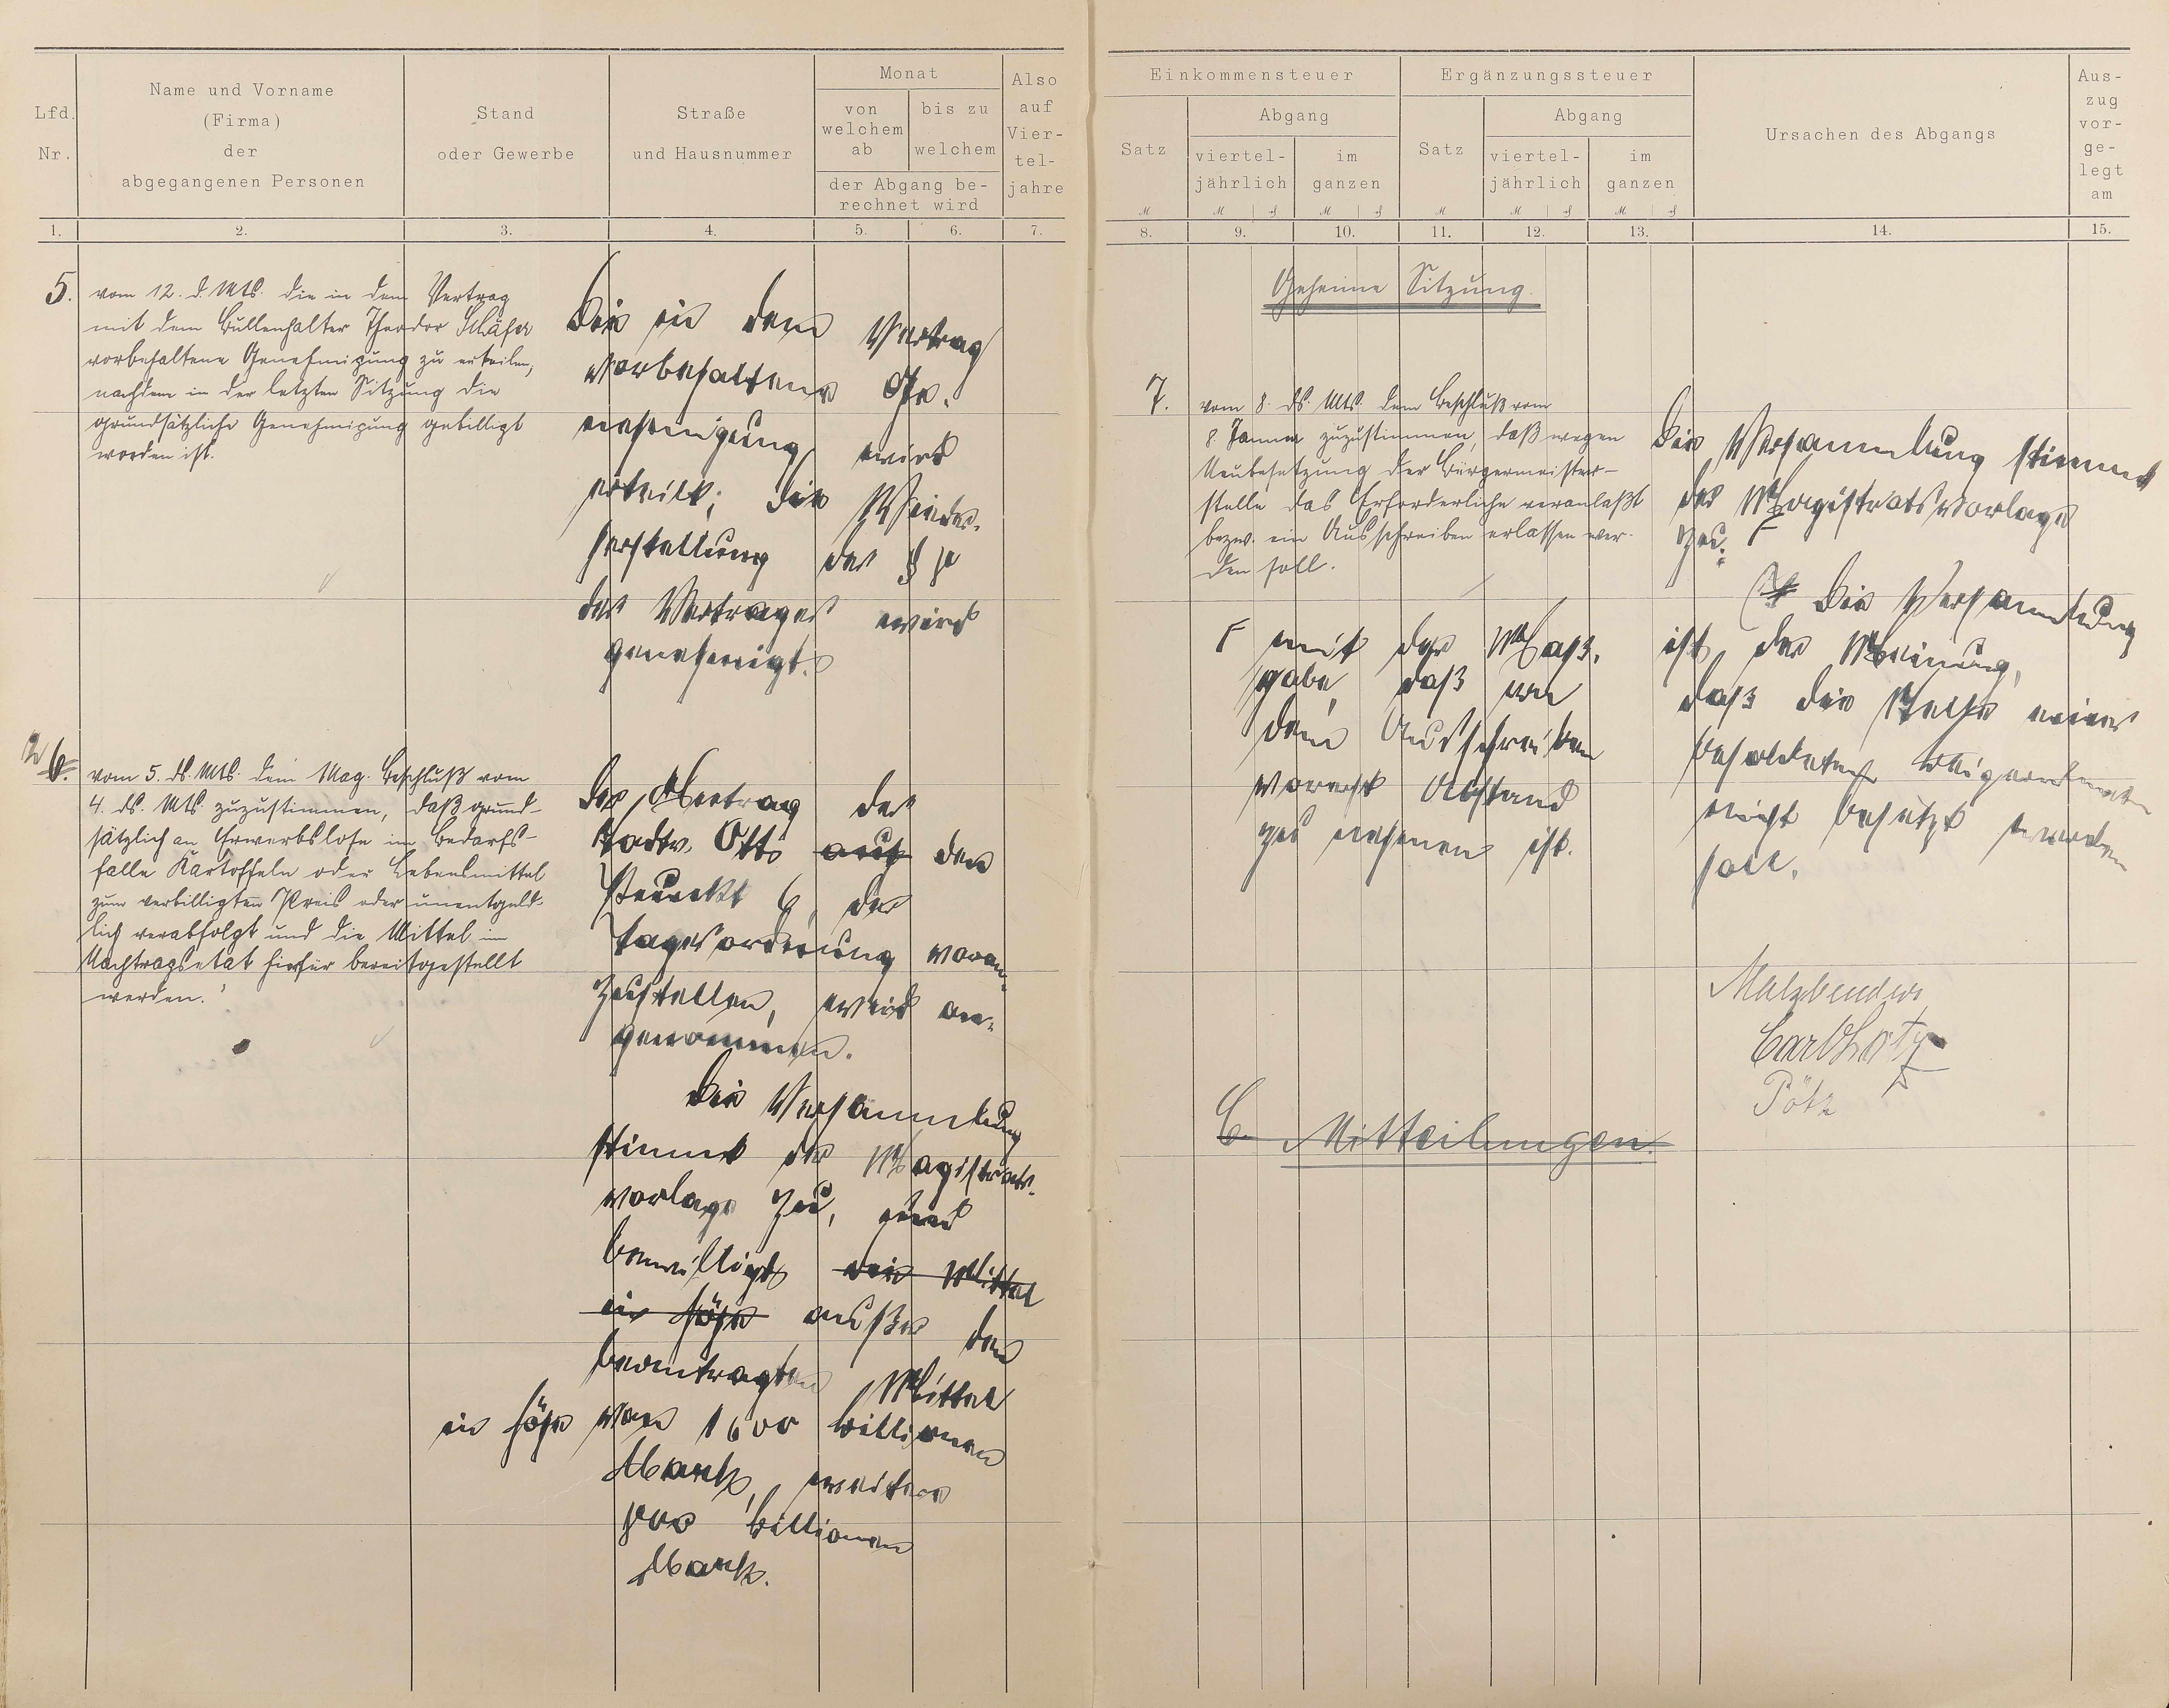 Lfd. Nr.
Name und Vorname
(Firma)
der
abgegangenen Personen
Stand
oder Gewerbe
Straße
und Hausnummer
Monat
von welchem ab
bis zu welchem
der Abgang be-
rechnet wird
Also auf Vier-tel-jahre
1. 2. 3. 4. 5. 6. 7.
5.
vom 12. d. Mts. die in dem Vertrag
mit dem Bullenhalter Theodor Schäfer
vorbehaltene Genehmigung zu erteilen,
nachdem in der letzten Sitzung die
grundsätzliche Genehmigung gebilligt
worden ist.
Die in dem Vertrag
vorbehaltene Ge-
nehmigung wird
erteilt; die
herstellung des §
des Vertrages wird
genehmigt.
2 6.
vom 5. ds. Mts. dem Mag. Beschluß vom
4. ds. Mts. zuzustimmen, daß grund-
sätzlich an Erwerbslose im Bedarfs-
falle Kartoffeln oder Lebensmittel
zum verbilligten Preis oder unentgeld-
lich verabfolgt und die Mittel im
Nachtragsetat hierfür bereitgestellt
werden.
Der Antrag des
Stadtv. Otto auf den
Punkt 6 der
Tagesordnung voran-
zustellen, wird an-
genommen.
Die Versammlung
stimmt der Magistrats-
vorlage zu, und
bewilligt die Mittel
in Höhe außer den
beantragten Mittel
in Höhe von 1600 Billionen
Mark, weitere
Billionen
Mark.
Einkommensteuer
Satz
Abgang
viertel-jährlich
im ganzen
Ergänzungssteuer
Satz
Abgang
viertel-jährlich
im ganzen
Ursachen des Abgangs
Aus-zug vor-ge-legt am
8. 9. 10. 11. 12. 13. 14. 15.
Geheime Sitzung.
7.
vom 8. ds. Mts. dem Beschluß vom
8. Januar zuzustimmen, daß wegen
Neubesetzung der Bürgermeister-
stelle das Erforderliche veranlaßt
bezw. ein Ausschreiben erlassen wer-
den soll.
Die Versammlung stimmt
der Magistratsvorlage
zu. F
F mit der Maß-
gabe, daß von
dem Ausschreiben
vorerst Abstand
zu nehmen ist.
Die Versammlung
ist der Meinung,
daß die Stelle eines
besoldeten Beigeordneten
nicht besetzt werden
soll.
Malzbender
Carl Lotz
Pötz
C. Mitteilungen.